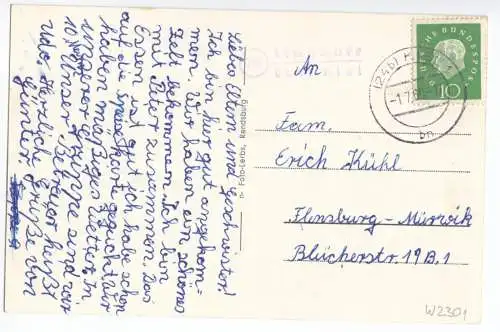 Liebe Eltern und Geschwister!
Ich bin hier gut angekom=
men. Wir haben ein schönes
Zelt bekommen. Ich bin
mit Peter zusammen. Das
Essen ist gut ich habe schon
auf die geguckt. Wir
haben mäßiges Wetter. In
unserer Gruppe sind wir
10. Unser Betreuer heißt
Udo. Herzliche Grüße von
Günter
n- Foto-Lerbs, Rendsburg
DEUTSCHE BUNDESPOST
10
(24b)
-1.7.6
bn
An
Fam.
Erich Kühl
Flensburg-Mürwik
Blücherstr. 19B.1
W2301